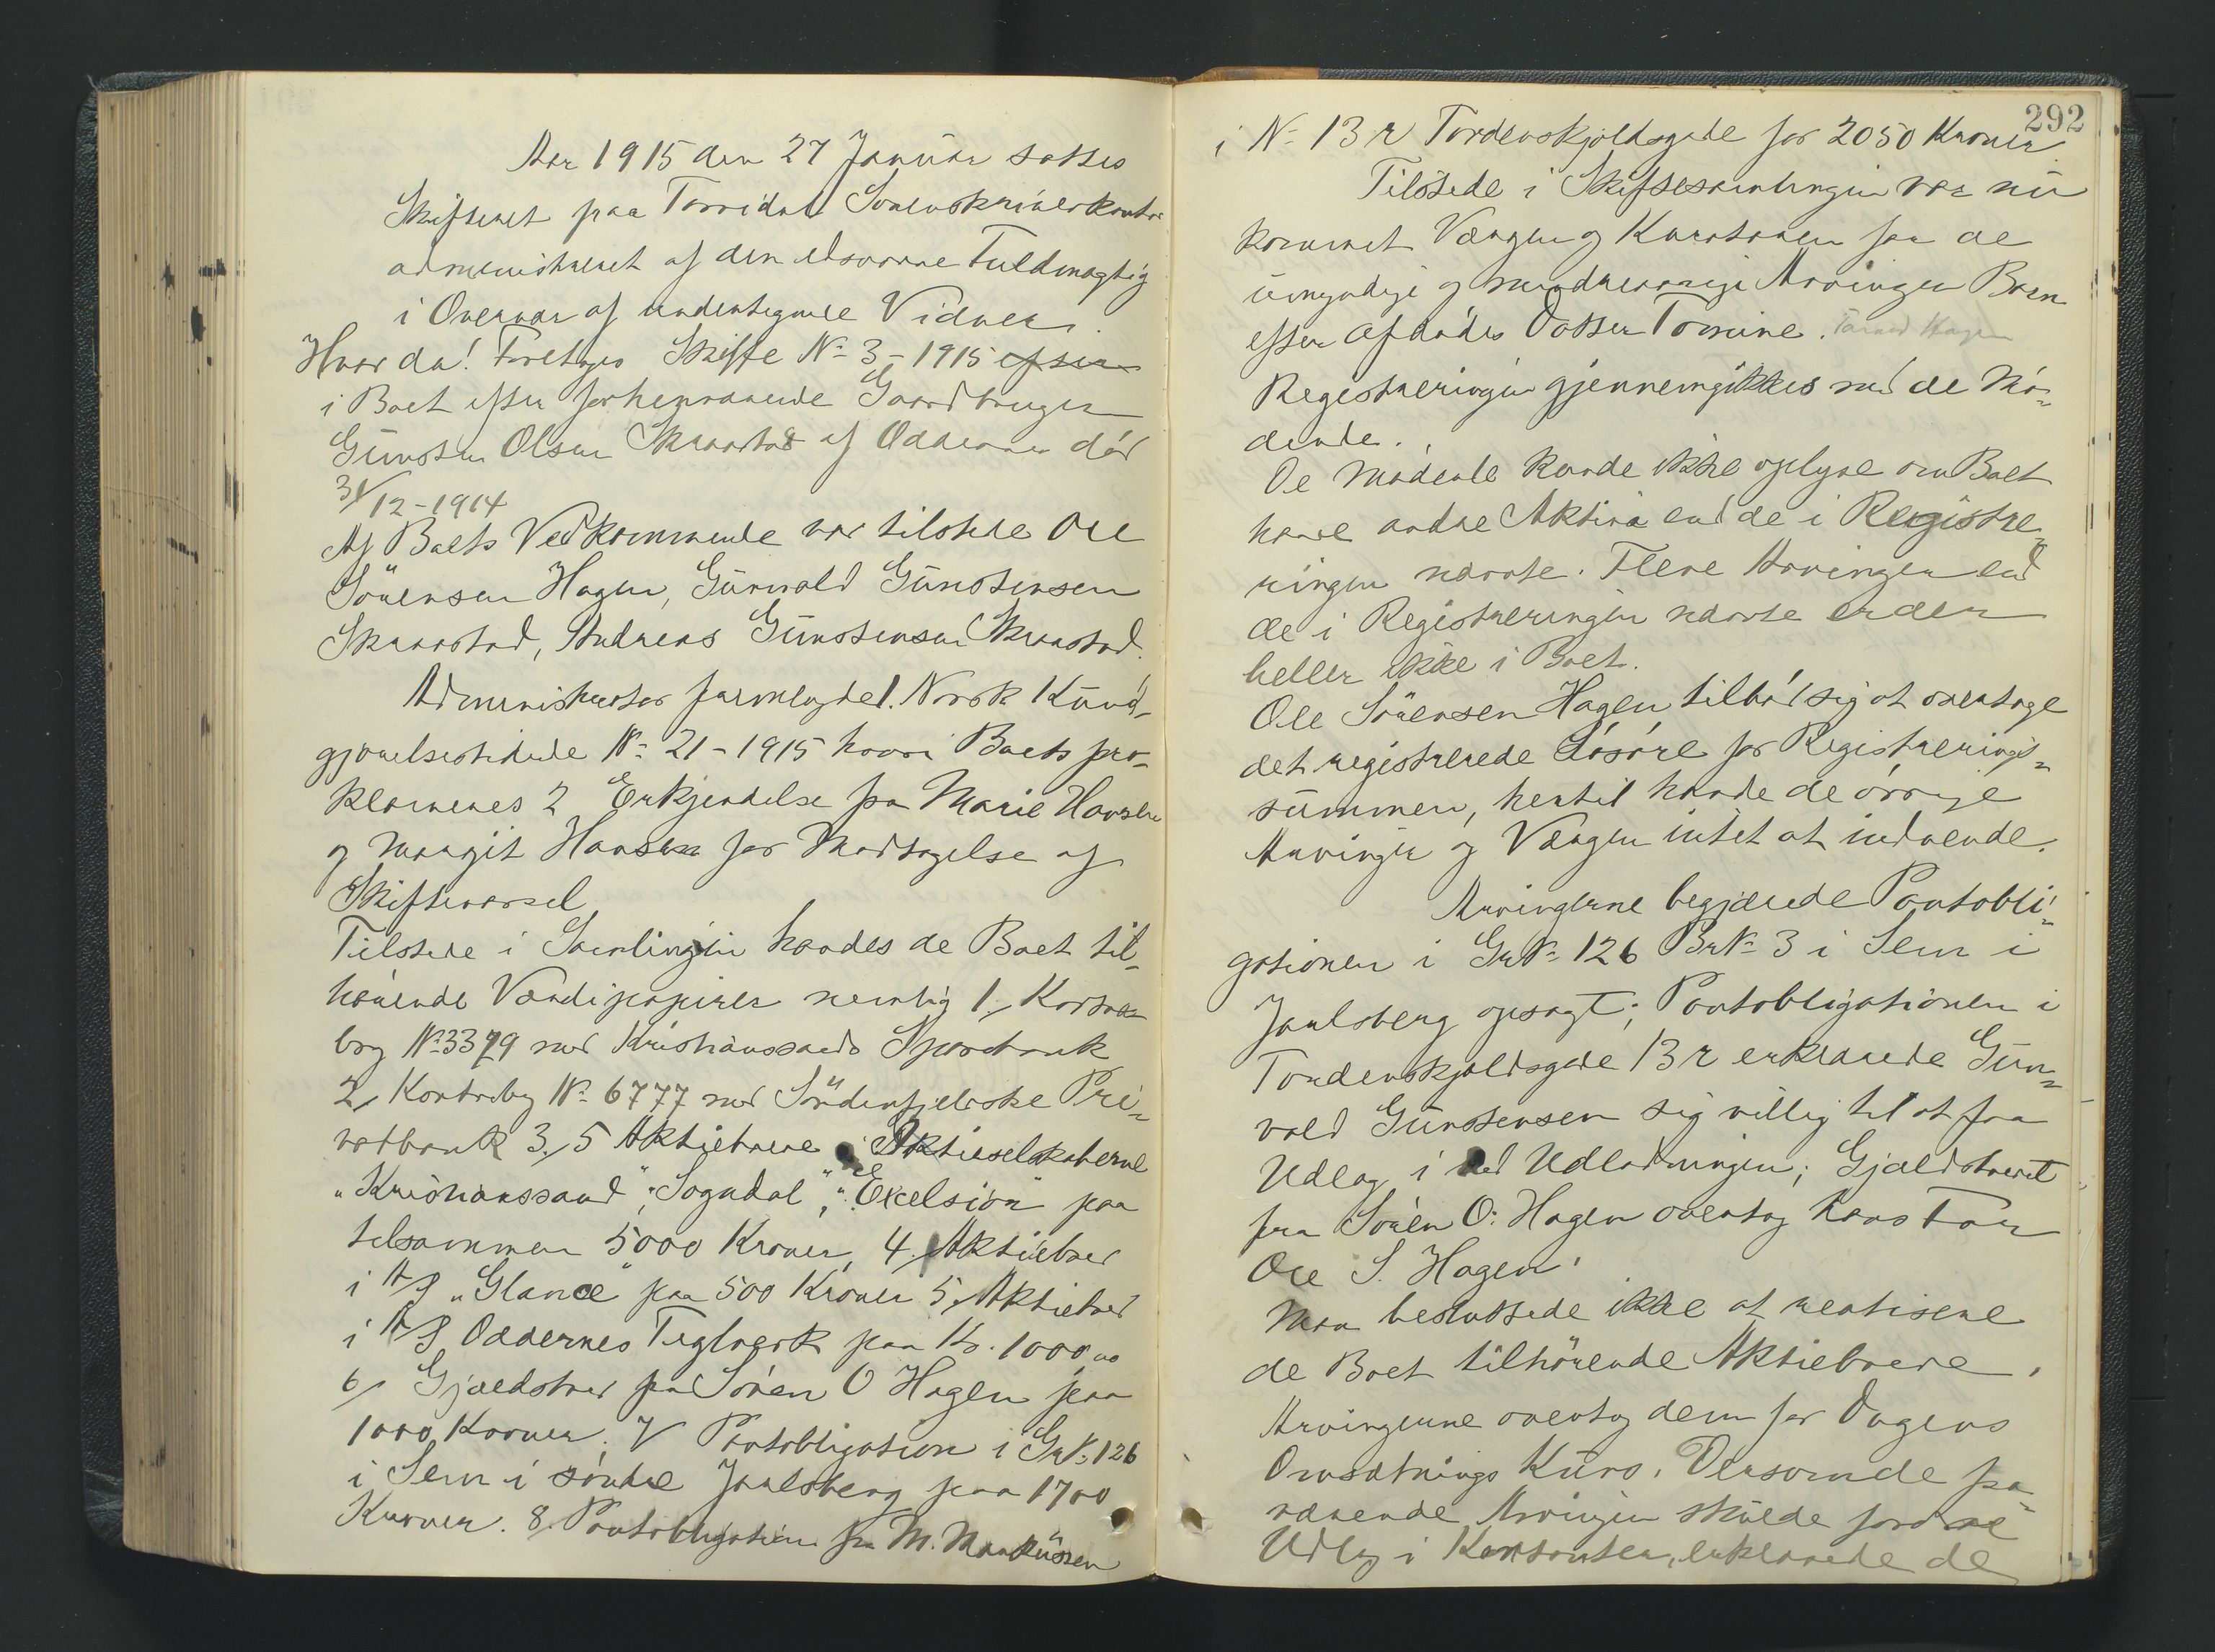 Aar 1915 den 27 Januar sattes
Skifteret paa Torridal Sorenskriverkontor
administreret af den edsvorne Fuldmægtig
i Overvær af undertegnede Vidner.
Hvor da! Foretoges Skifte No 3-1915 efter
i Boet efter forhenværende Gaardbruger
Gunsten Olsen Skraastad af Oddernes død
31/12-1914
Af Boets Vedkommende var tilstede Ole
Sörensen Hagen, Gunvald Gunstensen
Skraastad, Andreas Gunstensen Skraastad.
Administrator fremlagde 1. Norsk Kund-
gjørelsestidende No 21-1915 hvori Boets pro-
klamenes 2 Erkjendelse fra Marie Hansen
og Margit Hansen for Modtagelse af
Skiftevarsel
Tilstede i Samlingen havdes de Boet til-
hørende Værdipapirer nemlig 1, Kontra
bog No 3379 med Kristianssands Sparebank
2, Kontrabog No 6777 med Söndenfjeldske Pri-
vatbank 3, 5 Aktiebreve i Aktieselskaberne
"Kristianssand", "Sogndal", "Excelsior" paa
tilsammen 5000 Kroner, 4, Aktiebrev
i A/S "Glance" paa 500 Kroner 5, Aktiebrev
i A/S Oddernes Teglværk paa Kr. 1000,00
6, Gjældsbrev fra Sören O Hagen paa
1000 Kroner. 7, Pantobligation i GrNo 126
i Sem i söndre Jarlsberg paa 1700
Kroner. 8, Pantobligation fra M. Markussen
292
i No 13 r Tordenskjoldsgade for 2050 Kroner.
Tilstede i Skiftesamlingen var nu
kommet Værgen og Kuratoren for de
umyndige og mindreaarige Arvinger Børn
efter afdøde Datter Tomine. Hagen
Registreringen gjennemgikkes med de Mö-
dende.
De Mødende kunde ikke oplyse om Boet
havde andre Aktiva end de i Registre-
ringen nævnte. Flere Arvinger end
de i Registreringen nævnte er der
heller ikke i Boet.
Ole Sörensen Hagen tilbød sig at overtage
det registrerede Løsøre for Registrerings-
summen, hertil havde de øvrige
Arvinger og Værgen intet at indvende.
Arvingerne begjærede Pantobli-
gationen i GrNo 126 BrNo 3 i Sem i
Jarlsberg opsagt; Pantobligationen i
Tordenskjoldsgade 13 r erklærede Gun-
vald Gunstensen sig villig til at faa
Udlæg i ved Udlodningen; Gjældsbrevet
fra Sören O. Hagen overtog hans Far
Ole S. Hagen.
Man besluttede ikke at realisere
de Boet tilhörende Aktiebreve.
Arvingerne overtog dem for Dagens
Omsætnings Kurs. Dersom de fra-
værende Arvinger skulde fordre
Udlæg i Kontanter, erklærede de